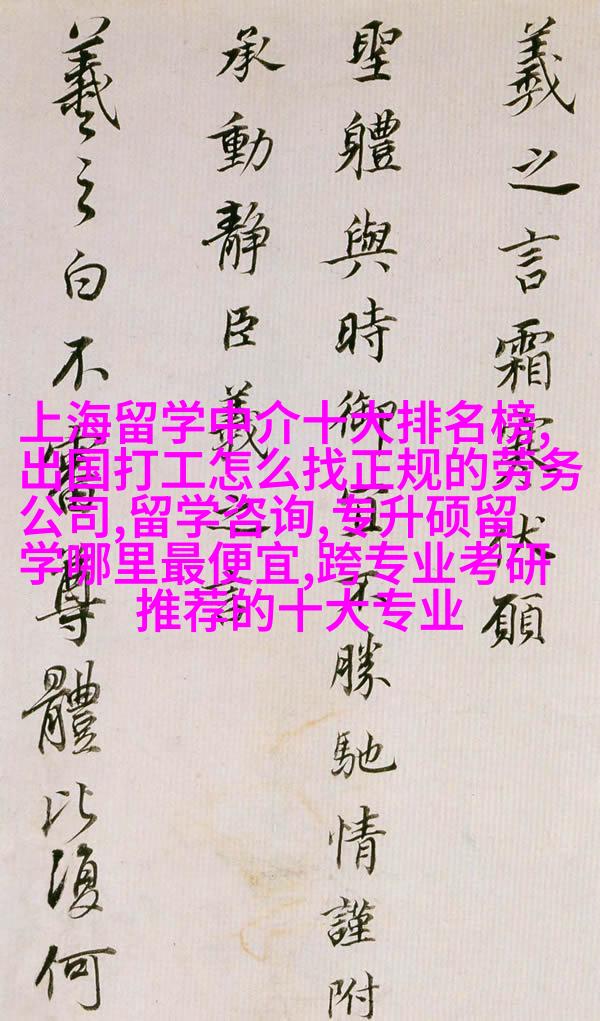 羲之言霜寒伏願
聖體與時御宜不勝馳情謹附
承動靜臣羲之言
羲之白不審尊體比復何
上海留学中介十大排名榜,
出国打工怎么找正规的劳务
公司,留学咨询,专升硕留
学哪里最便宜,跨专业考研
推荐的十大专业